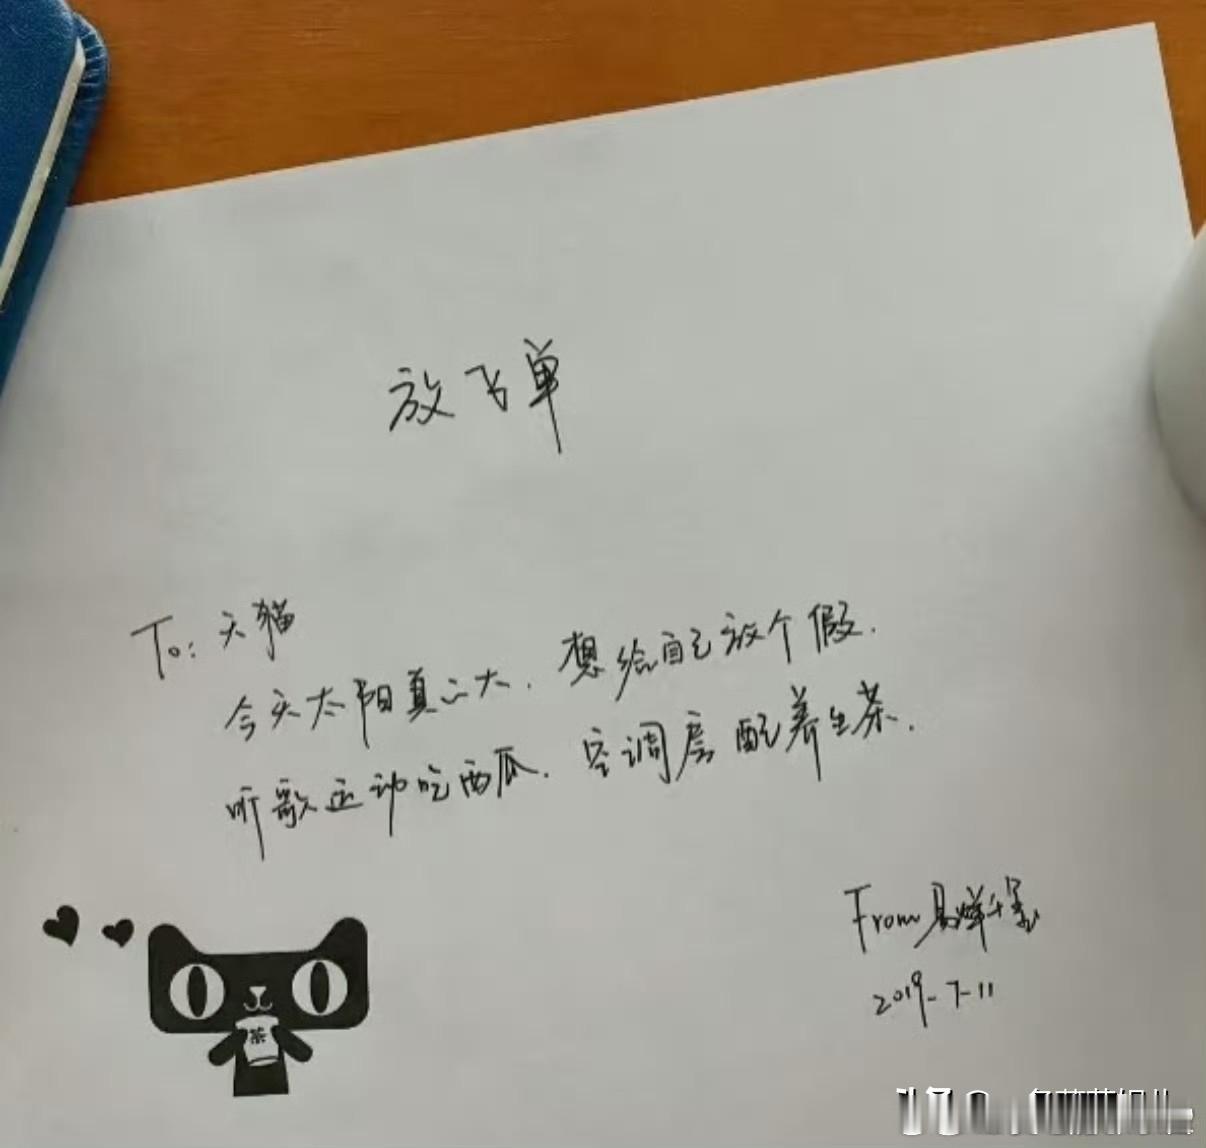 放飞单
To: 天猫
今天太阳真之大.想给自己放个假.
听歌运动吃西瓜.空调房配养生茶.
From 易烊千玺
2019-7-11
茶